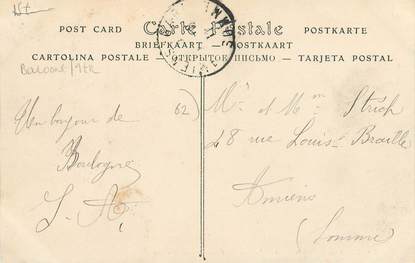 POST CARD Carte Postale POSTKARTE
BRIEFKAART POSTKAART
CARTOLINA POSTALE ОТКРЫТОЕ ПИСЬМО TARJETA POSTAL
62)
Un bonjour de
Boulogne
Mr et Mme
48 rue Louis Braille
Amiens
(Somme)